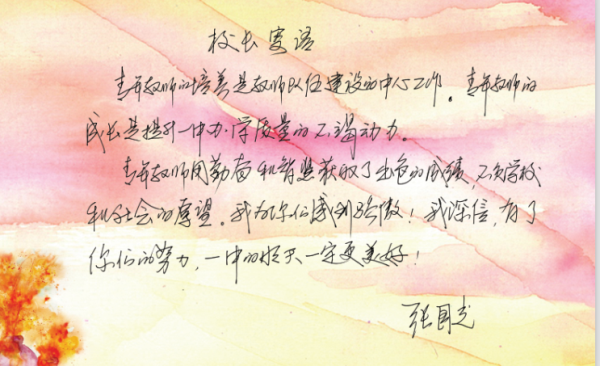 校长寄语
青年教师的培养是教师队伍建设的中心工作。青年教师的
成长是提升一中办学质量的不竭动力。
青年教师用勤奋和智慧获取了出色的成绩，不负学校
和社会的厚望。我为你们感到骄傲！我深信，有了
你们的努力，一中的明天一定更美好！
张国志